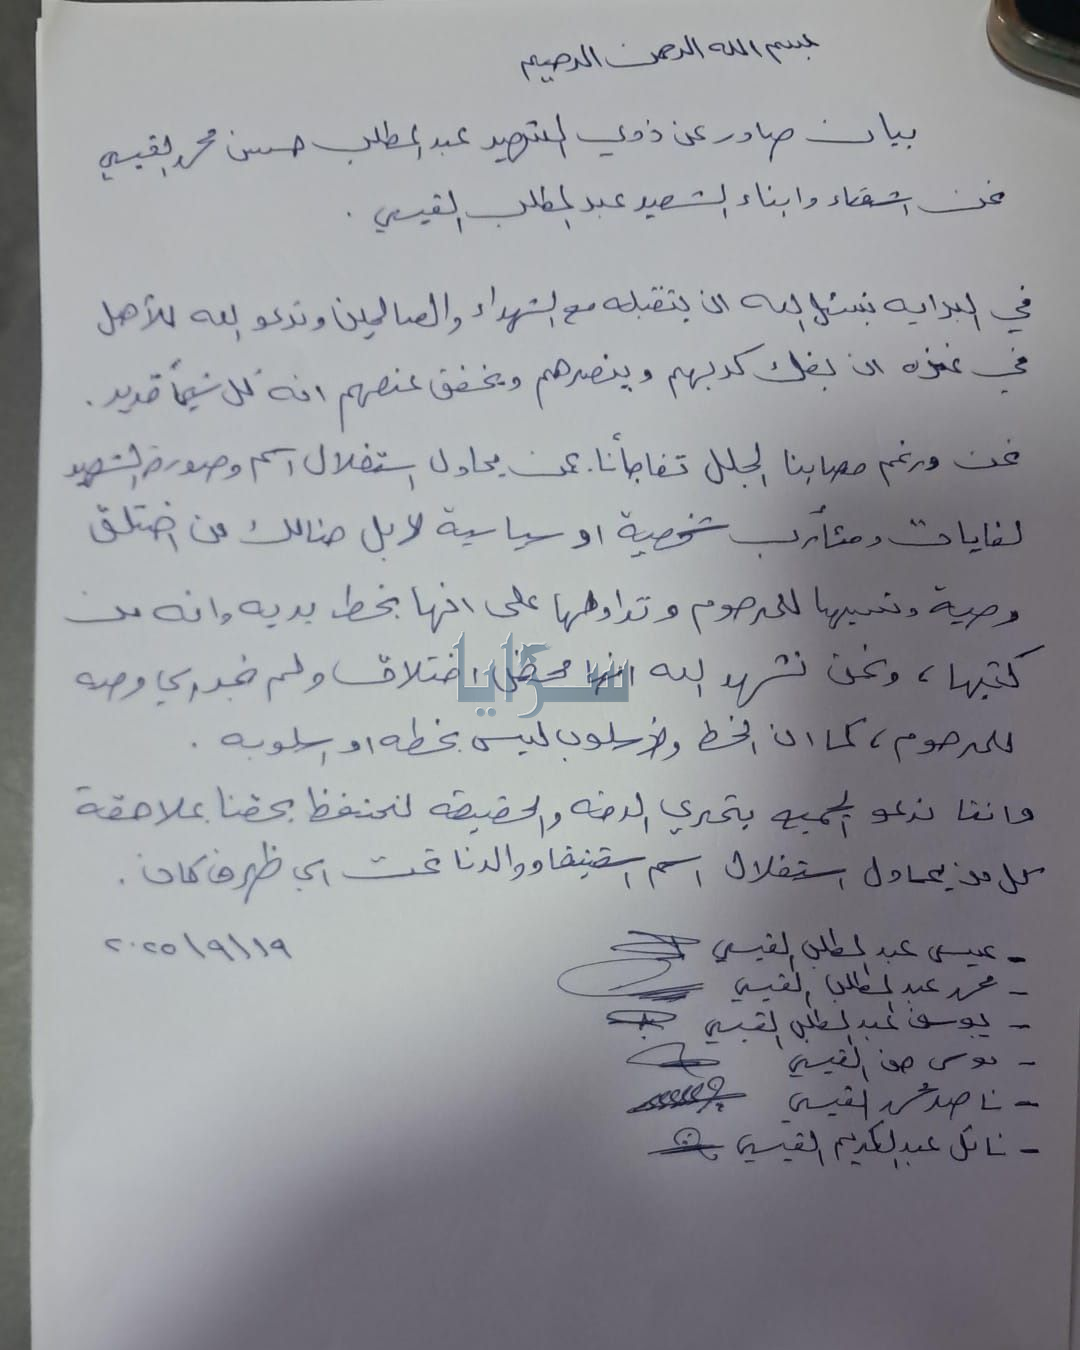 بسم الله الرحمن الرحيم
بيان صادر عن ذوي الشهيد عبد المطلب حسن محمد القيسي
نحن اشقاء وابناء الشهيد عبد المطلب القيسي .
في البدايه نسئل الله ان يتقبله مع الشهداء والصالحين وندعو الله للأهل
في غزه ان يفك كربهم وينصرهم ويخفف عنهم انه كل شيئاً قدير .
نحن ورغم مصابنا الجلل تفاجأنا بمن يحاول استغلال اسم وصورة الشهيد
لغايات ومئأرب شخصية او سياسية لا بل هنالك من اختلق
وصية ونسبها للمرحوم وتداولها على انها بخط يديه وانه من
كتبها ، ونحن نشهد الله انها محض اختلاق ولم نجد اي وصيه
للمرحوم ، كما ان الخط والأسلوب ليس بخطه او اسلوبه .
واننا ندعو الجميع بتحري الدقه والحقيقه لنحتفظ بحقنا بملاحقة
كل من يحاول استغلال اسم شقيقنا ووالدنا تحت اي ظرف كان .
٢٠٢٥/٩/١٩
- عيسى عبد المطلب القيسي
- محمد عبد المطلب القيسي
- يوسف عبد المطلب القيسي
- موسى حسن القيسي
- ناصر محمد القيسي
- نائل عبد الكريم القيسي
سرايا